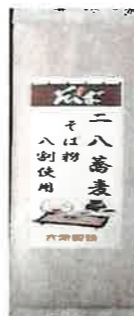 そば
二八蕎麦
そば粉
八割使用